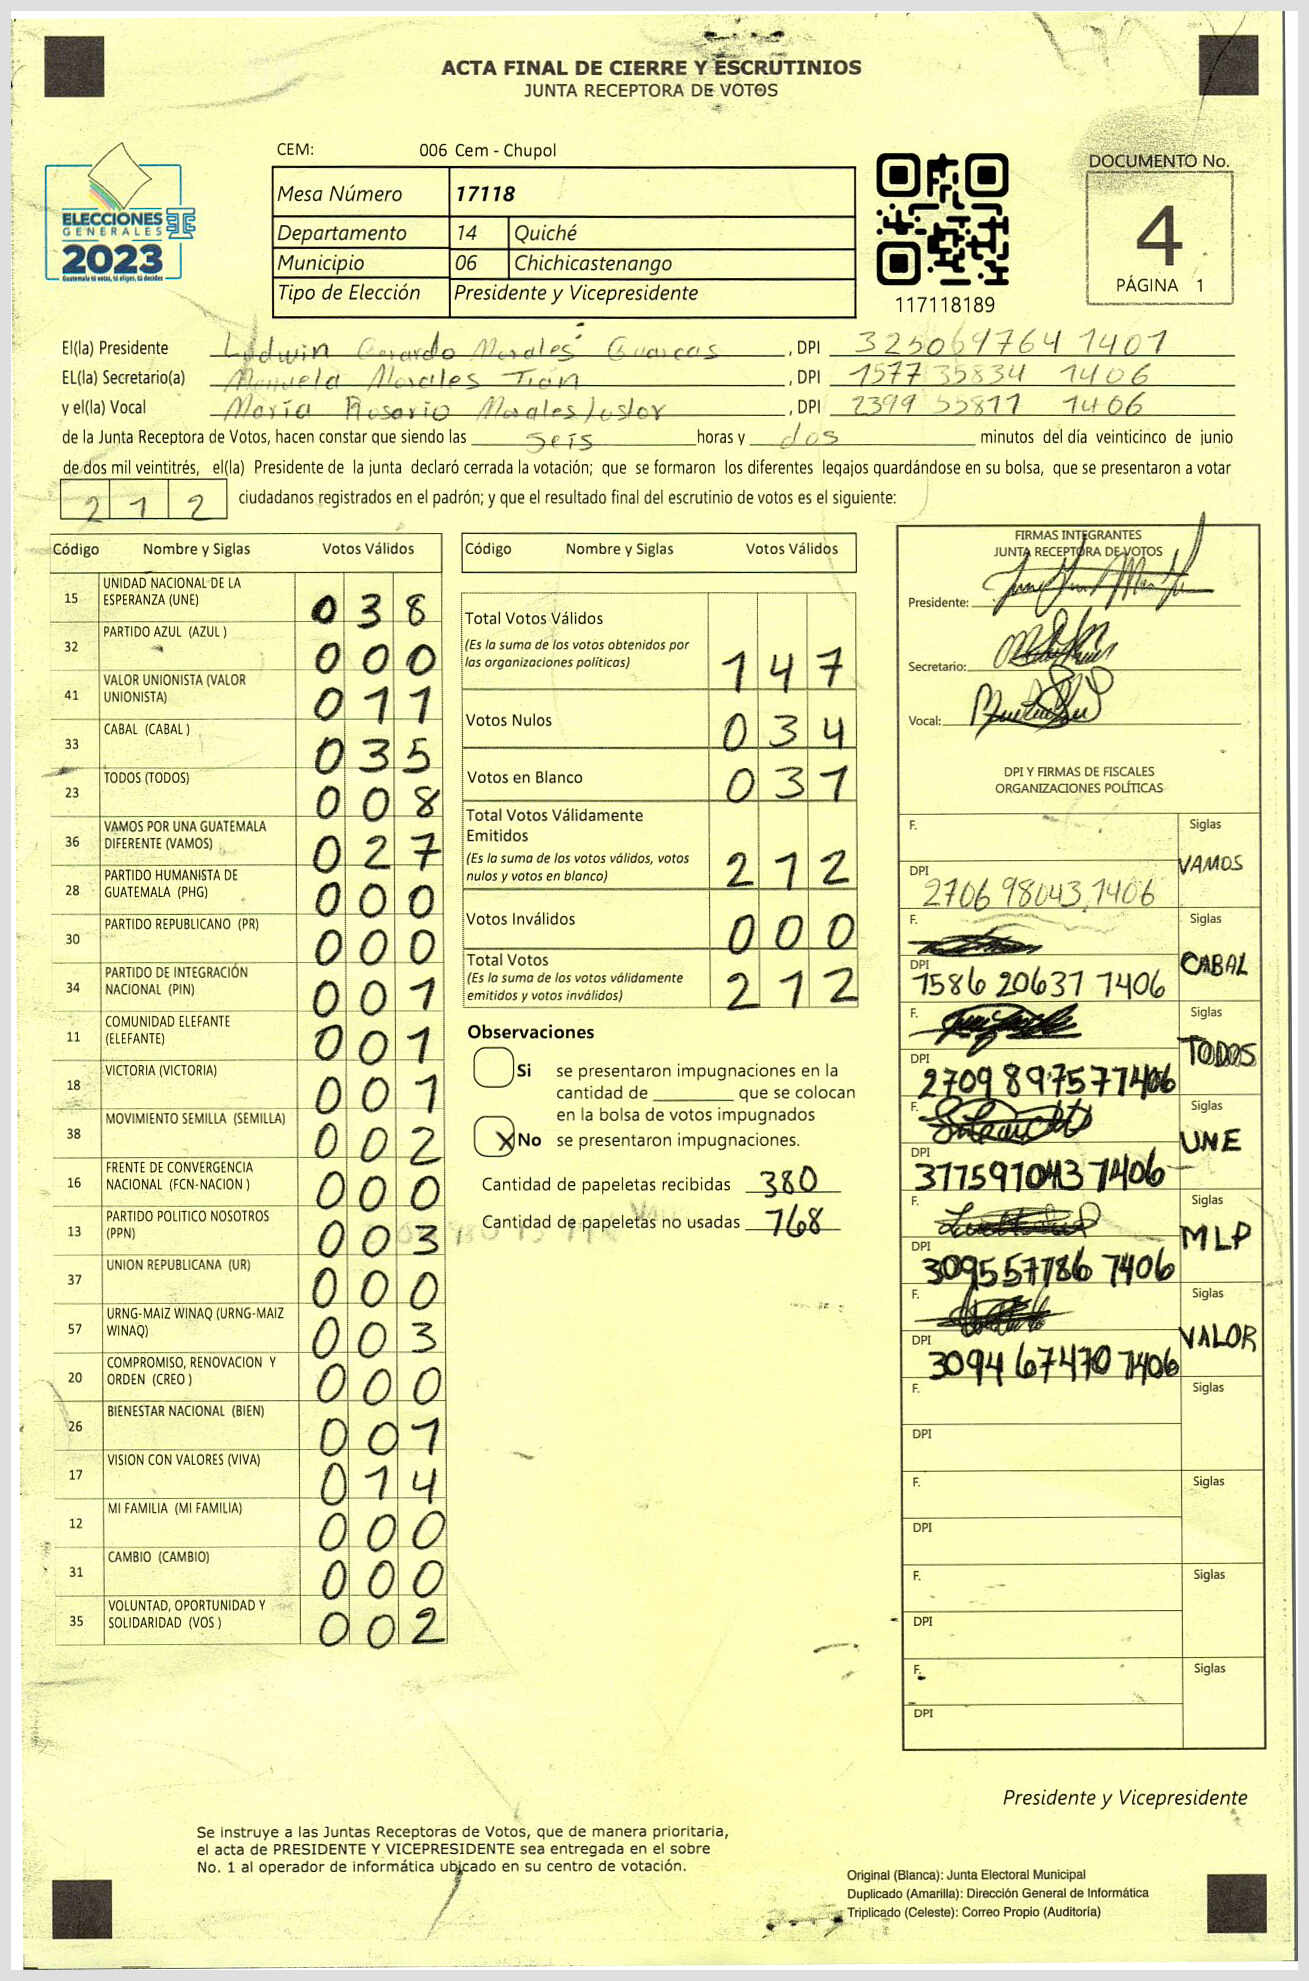 ACTA FINAL DE CIERRE Y ESCRUTINIOS
JUNTA RECEPTORA DE VOTOS
ELECCIONES
GENERALES
2023
Guatemala tú votas, tú eliges, tú decides
CEM: 006 Cem - Chupol
Mesa Número 17118
Departamento 14 Quiché
Municipio 06 Chichicastenango
Tipo de Elección Presidente y Vicepresidente
117118189
DOCUMENTO No.
4
PÁGINA 1
El(la) Presidente Ludwin Gerardo Morales Guarcas, DPI 325069764 1401
EL(la) Secretario(a) Manuela Morales Tián, DPI 1577 35834 1406
y el(la) Vocal María Rosario Morales, DPI 2399 55811 1406
de la Junta Receptora de Votos, hacen constar que siendo las seis horas y dos minutos del día veinticinco de junio
de dos mil veintitrés, el(la) Presidente de la junta declaró cerrada la votación; que se formaron los diferentes legajos guardándose en su bolsa, que se presentaron a votar
212 ciudadanos registrados en el padrón; y que el resultado final del escrutinio de votos es el siguiente:
Código Nombre y Siglas Votos Válidos
15 UNIDAD NACIONAL DE LA ESPERANZA (UNE) 038
32 PARTIDO AZUL (AZUL ) 000
41 VALOR UNIONISTA (VALOR UNIONISTA) 011
33 CABAL (CABAL ) 035
23 TODOS (TODOS) 008
36 VAMOS POR UNA GUATEMALA DIFERENTE (VAMOS) 027
28 PARTIDO HUMANISTA DE GUATEMALA (PHG) 000
30 PARTIDO REPUBLICANO (PR) 000
34 PARTIDO DE INTEGRACIÓN NACIONAL (PIN) 001
11 COMUNIDAD ELEFANTE (ELEFANTE) 001
18 VICTORIA (VICTORIA) 001
38 MOVIMIENTO SEMILLA (SEMILLA) 002
16 FRENTE DE CONVERGENCIA NACIONAL (FCN-NACION ) 000
13 PARTIDO POLITICO NOSOTROS (PPN) 003
37 UNION REPUBLICANA (UR) 000
57 URNG-MAIZ WINAQ (URNG-MAIZ WINAQ) 003
20 COMPROMISO, RENOVACION Y ORDEN (CREO ) 000
26 BIENESTAR NACIONAL (BIEN) 001
17 VISION CON VALORES (VIVA) 014
12 MI FAMILIA (MI FAMILIA) 000
31 CAMBIO (CAMBIO) 000
35 VOLUNTAD, OPORTUNIDAD Y SOLIDARIDAD (VOS ) 002
Código Nombre y Siglas Votos Válidos
Total Votos Válidos
(Es la suma de los votos obtenidos por
las organizaciones políticas) 147
Votos Nulos 034
Votos en Blanco 031
Total Votos Válidamente
Emitidos
(Es la suma de los votos válidos, votos
nulos y votos en blanco) 212
Votos Inválidos 000
Total Votos
(Es la suma de los votos válidamente
emitidos y votos inválidos) 212
Observaciones
Si se presentaron impugnaciones en la
cantidad de ________ que se colocan
en la bolsa de votos impugnados
X No se presentaron impugnaciones.
Cantidad de papeletas recibidas 380
Cantidad de papeletas no usadas 168
FIRMAS INTEGRANTES
JUNTA RECEPTORA DE VOTOS
Presidente:
Secretario:
Vocal:
DPI Y FIRMAS DE FISCALES
ORGANIZACIONES POLÍTICAS
F. Siglas
VAMOS
DPI 2706 98043 1406
F. Siglas
CABAL
DPI 1586 20637 1406
F. Siglas
TODOS
DPI 2709 89757 1406
F. Siglas
UNE
DPI 317597043 1406
F. Siglas
MLP
DPI 309557786 1406
F. Siglas
VALOR
DPI 3094 67470 1406
F. Siglas
DPI
F. Siglas
DPI
F. Siglas
DPI
F. Siglas
DPI
Presidente y Vicepresidente
Se instruye a las Juntas Receptoras de Votos, que de manera prioritaria,
el acta de PRESIDENTE Y VICEPRESIDENTE sea entregada en el sobre
No. 1 al operador de informática ubicado en su centro de votación.
Original (Blanca): Junta Electoral Municipal
Duplicado (Amarilla): Dirección General de Informática
Triplicado (Celeste): Correo Propio (Auditoría)